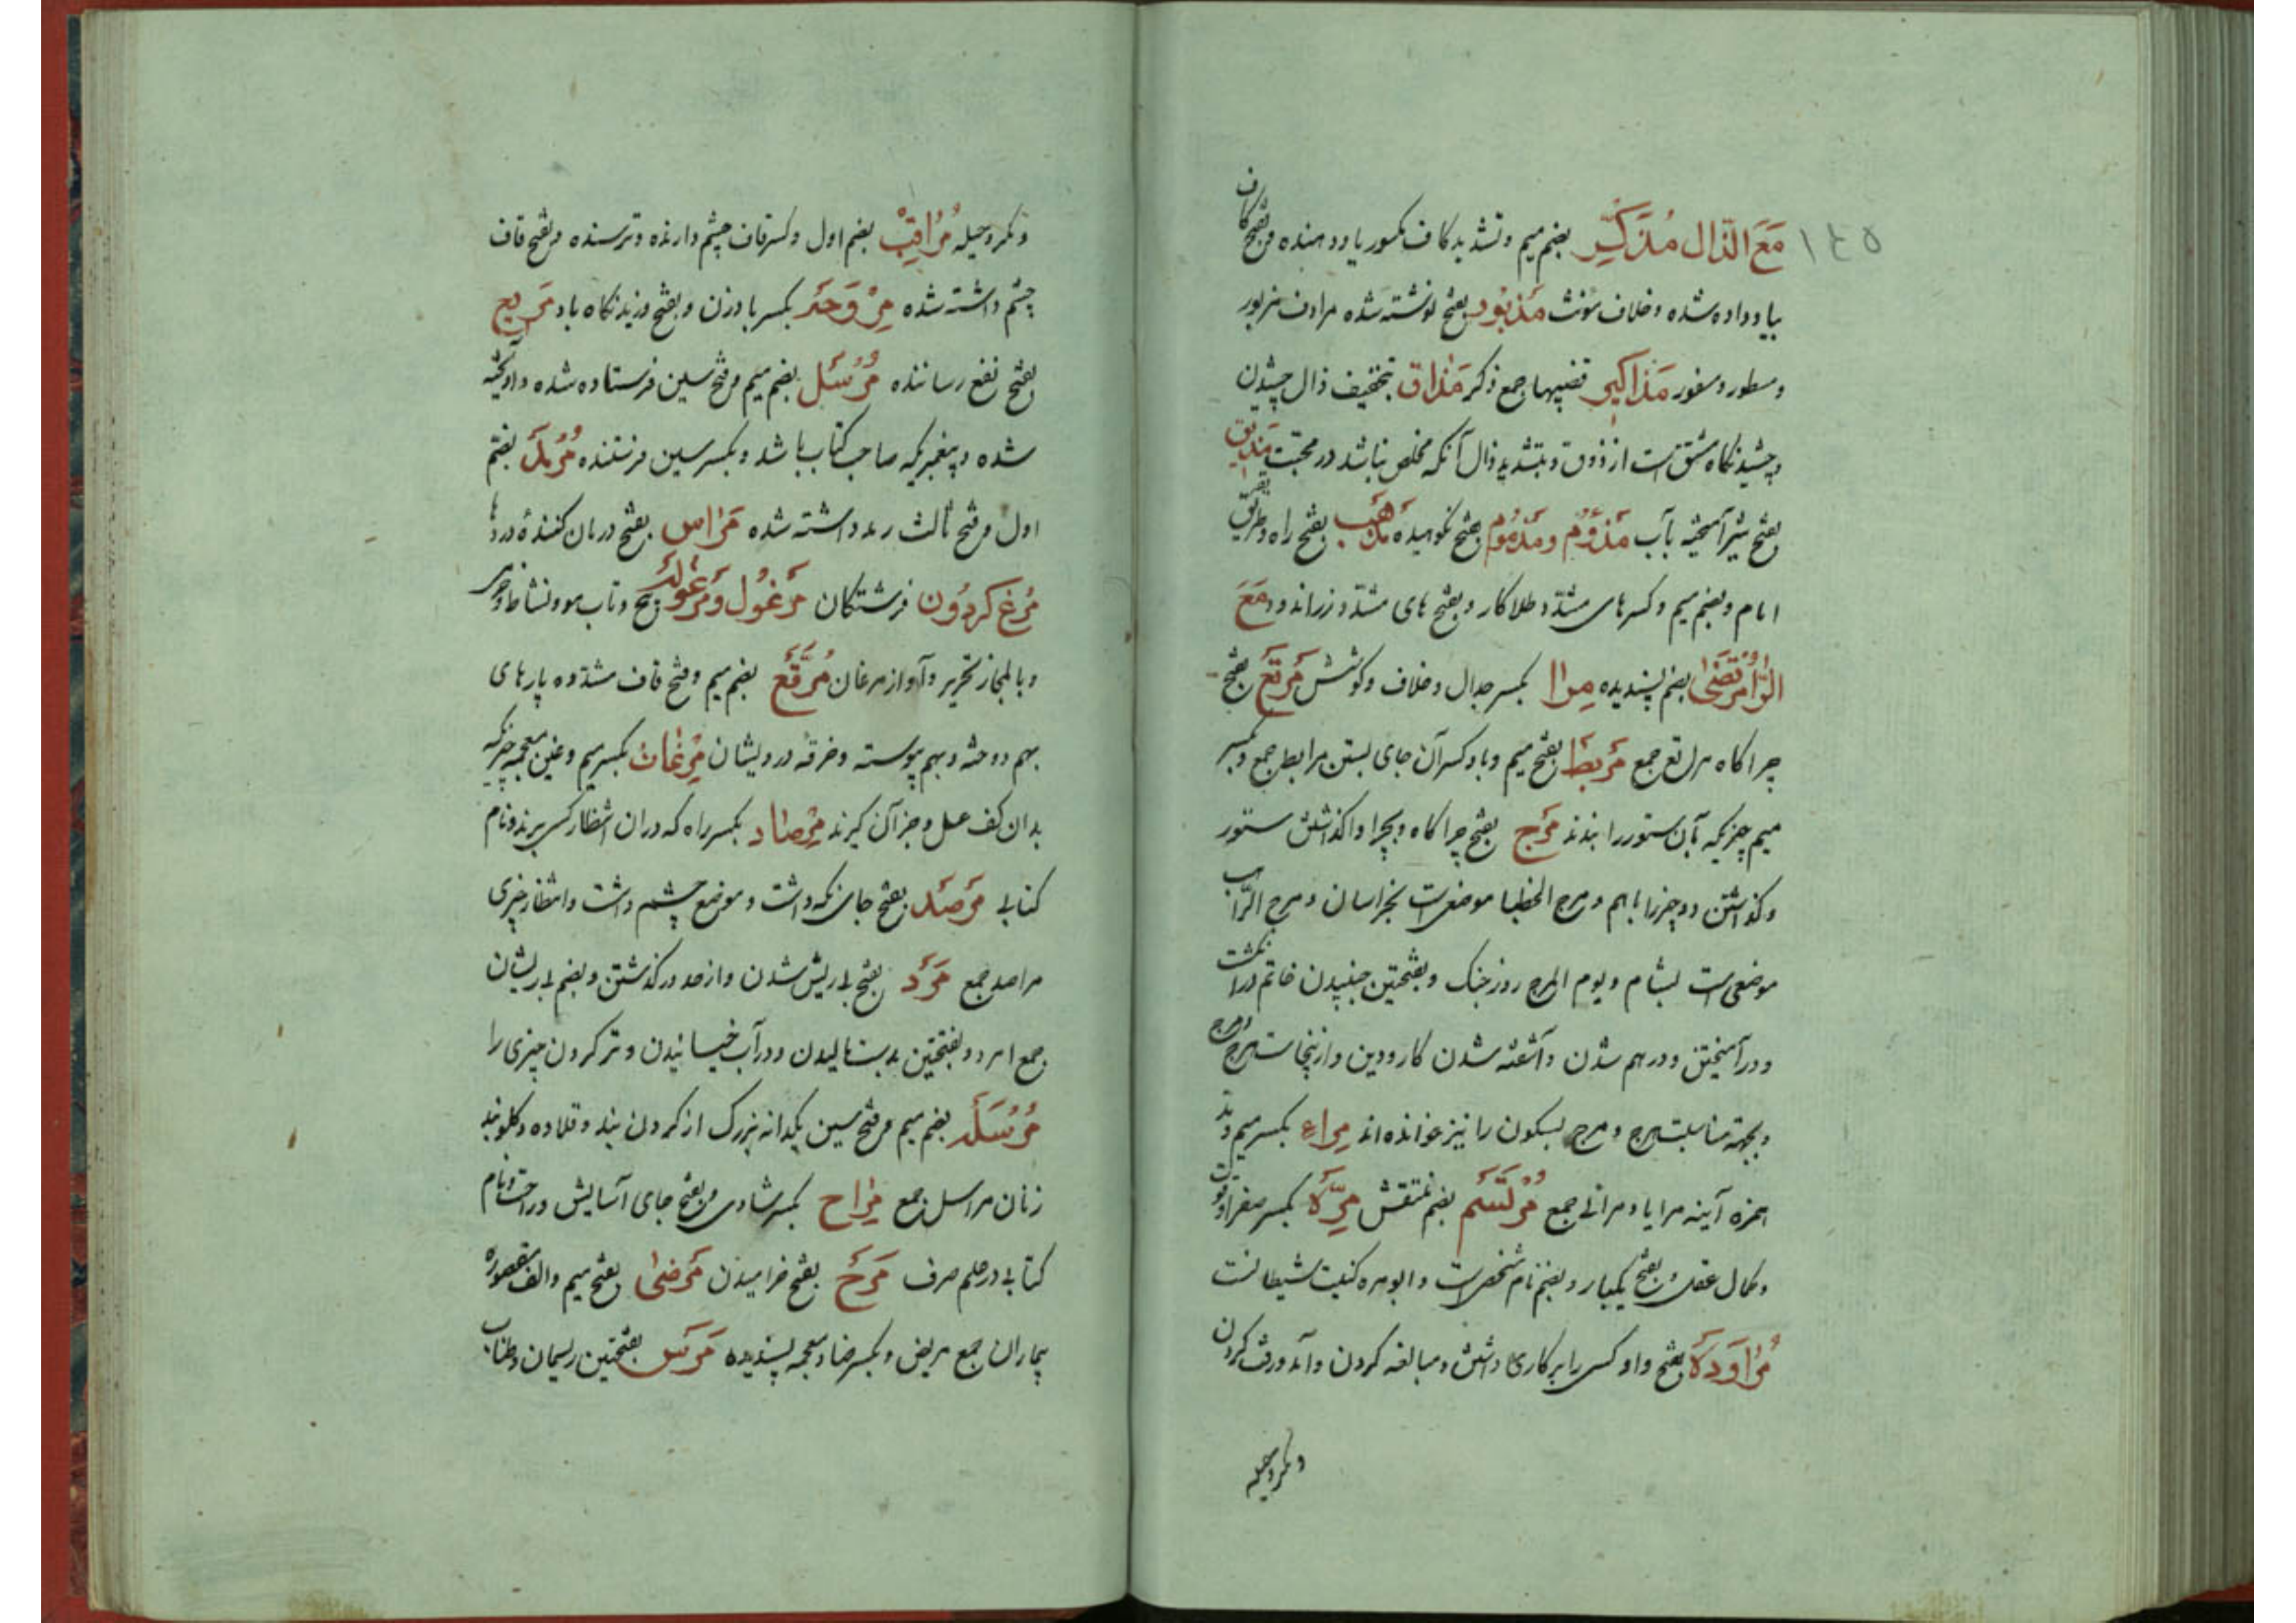 ١٤٥
مَعَ الذّال مُذَكِّر بضم میم و تشدید کاف مکسور یاد دهنده و بفتح کاف
یاد داده شده و خلاف مونث مَذبُور بفتح نوشته شده مرادف مزبور
و مسطور و سفور مَذاکیر قضیبها جمع ذکر مَذاق بتخفیف ذال چشیدن
و چشیدنکاه مشتق است از ذوق و بتشدید ذال آنکه مخلص نباشد در محبت مَذیق
بفتح شیر آمیخته بآب مَذؤم و مَذمُوم بفتح نکوهیده مَذهَب بفتح راه و طریق
امام و بضم میم و کسر های مشدد طلا کار و بفتح های مشدد زر اندود مَعَ
الرّا مُرتَضیٰ بضم پسندیده مِرا بکسر جدال و خلاف و کوشش مَرتَع بفتح
چراکاه مراتع جمع مَربَط بفتح میم و با و کسر آن جای بستن مرابط جمع و بکسر
میم چیزیکه بآن ستور را بندند مَرج بفتح چراکاه و بچرا واکذاشتن ستور
و کذاشتن دو چیز را باهم و مرج الخطبا موضعی است بخراسان و مرج الراهب
موضعی است بشام و یوم المرج روز جنک و بفتحتین جنبیدن خاتم در انکشت
و درآمیختن و درهم شدن و آشفته شدن کار و دین و ازینجاست هرج و مرج
و بجهة مناسبت هرج و مرج بسکون را نیز خوانده اند مِراء بکسر میم و مد
همزه آینه مرایا و مرائی جمع مُرتَسَم بضم منتقش مِرَّة بکسر صفرا و قوت
و کمال عقل و بفتح یکبار و بضم نام شخصی است و ابومره کنیت شیطانست
مُراوَدَة بفتح واو کسی را بر کاری داشتن و مبالغه کردن و آمد و رفت کردن
و مکر و حیله
و مکر و حیله مُراقِبْ بضم اول و کسر قاف چشم دارنده و ترسنده و بفتح قاف
چشم داشته شده مِرْوَحَه بکسر بادزن و بفتح وزیدنکاه باد مَریح
بفتح نفع رساننده مُرْسَل بضم میم و فتح سین فرستاده شده و آویخته
شده و پیغمبریکه صاحب کتاب باشد و بکسر سین فرستنده بضم
اول و فتح ثالث داشته شده مَراس بفتح درمان کنندۀ دردها
مُرغ کردُون فرشتکان مَرغُول و مَرغُوله پیچ و تاب مو و نشاط و
و بالمجاز تحریر و آواز مرغان مُرَقَّع بضم میم و فتح قاف مشدد پارهای
بهم دوخته و بهم پیوسته و خرقه درویشان مِرْغات بکسر میم و غین معجمه چیزیکه
بدان کف عسل و جز آن کیرند مِرْصاد بکسر راه که دران انتظار کسی برند و نام
کتابی مَرصَد بفتح جای نکه داشت و موضع چشم داشت و انتظار چیزی
مراصد جمع مَرَد بفتح بی ریش شدن و از حد در کذشتن و بضم بی ریشان
جمع امرد و بفتحتین بدست مالیدن و در آب خیسانیدن و تر کردن چیزی را
مُرْسَلَه بضم میم و فتح سین یکدانه بزرک از کردن بند و قلاده و کلوبند
زنان مراسل جمع مِراح بکسر شادی و بفتح جای آسایش و راحت و نام
کتابی در علم صرف مَرَح بفتح خرامیدن مَرضیٰ بفتح میم و الف مقصوره
بیماران جمع مریض و بکسر ضاد معجمه پسندیده مَرَس بفتحتین ریسمان و طناب